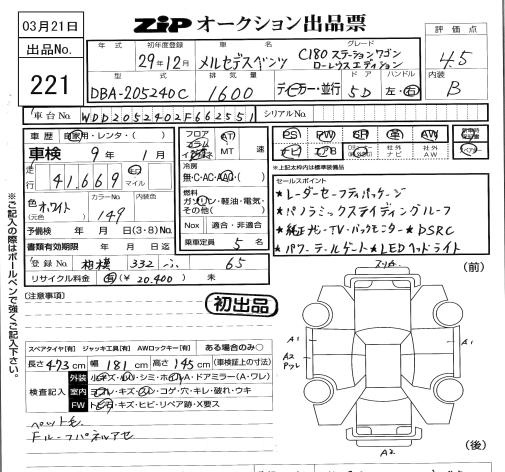 03月21日
ZiP オークション出品票
評価点
4.5
内装
B
出品No.
221
年式 初年度登録 車名 グレード
29年12月 メルセデスベンツ C180 ステーションワゴン
ローレウスエディション
型式 排気量 ドア ハンドル
DBA-205240C 1600 ディーラー・並行 5D 左・右
車台No. WDD2052402F662551 シリアルNo.
車歴 自家用・レンタ・( )
車検 9年 1月
走行 41,669 km マイル
色 ホワイト (元色) カラーNo. 149 内装色
予備検 年 月 日(3・8)No.
書類有効期限 年 月 日迄
登録No. 相模 332 ふ 65
リサイクル料金 有(¥ 20,400) 未
フロア コラム インパネ AT MT 速
冷房
無・C・AC・AAC・( )
燃料
ガソリン・軽油・電気・その他( )
Nox 適合・非適合
乗車定員 5 名
PS PW SR 革 AW
ナビ エアB 社外ナビ 社外AW
*上記太枠内は標準装備品
セールスポイント
★レーダーセーフティパッケージ
★パノラミックスライディングルーフ
★純正ナビ・TV・バックモニター★DSRC
★パワーテールゲート★LEDヘッドライト
※ご記入の際はボールペンで強くご記入下さい。
[注意事項]
初出品
スペアタイヤ[有] ジャッキ工具[有] AWロックキー[有] ある場合のみ○
長さ 473 cm 幅 181 cm 高さ 145 cm (車検証上の寸法)
検査記入
外装 小キズ・凹・シミ・ホイルA・ドアミラー(A・ワレ)
室内 ヨゴレ・キズ・スレ・コゲ・穴・キレ・破れ・ウキ
FW トビ石・キズ・ヒビ・リペア跡・X要ス
ペット毛
Fルーフパネルアセ
スリキズ
(前)
A1
A2
A1
A2
(後)